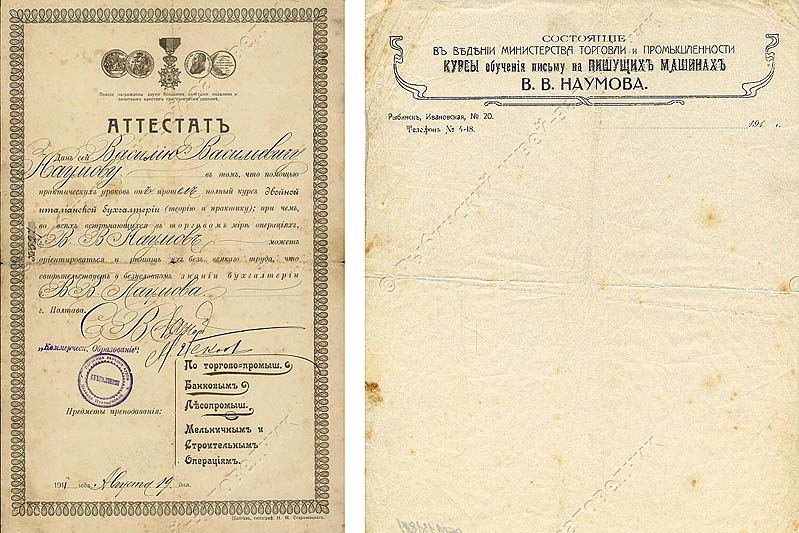 АТТЕСТАТЪ
Данъ сей Василію Васильевичу
Наумову
въ томъ, что помощью
практическихъ уроковъ онъ прошелъ полный курсъ двойной
италіанской бухгалтеріи (теорію и практику); при чемъ,
во всѣхъ встрѣчающихся въ торговомъ мірѣ операціяхъ,
В. В. Наумовъ можетъ
оріентироваться и рѣшать ихъ безъ всякаго труда, что
свидѣтельствуетъ о безусловномъ знаніи бухгалтеріи
В. В. Наумова.
г. Полтава.
„Коммерческ. Образованіе“:
Предметы преподаванія:
По торгово-промыш.
Банковымъ
Лѣсопромыш.
Мельничнымъ и
Строительнымъ
Операціямъ.
1911 года, Августа 19 дня.
СОСТОЯЩІЕ
ВЪ ВѢДѢНІИ МИНИСТЕРСТВА ТОРГОВЛИ и ПРОМЫШЛЕННОСТИ
КУРСЫ обученія письму на ПИШУЩИХЪ МАШИНАХЪ
В. В. НАУМОВА.
Рыбинскъ, Ивановская, № 20.
Телефонъ № 4-18.
191 г.